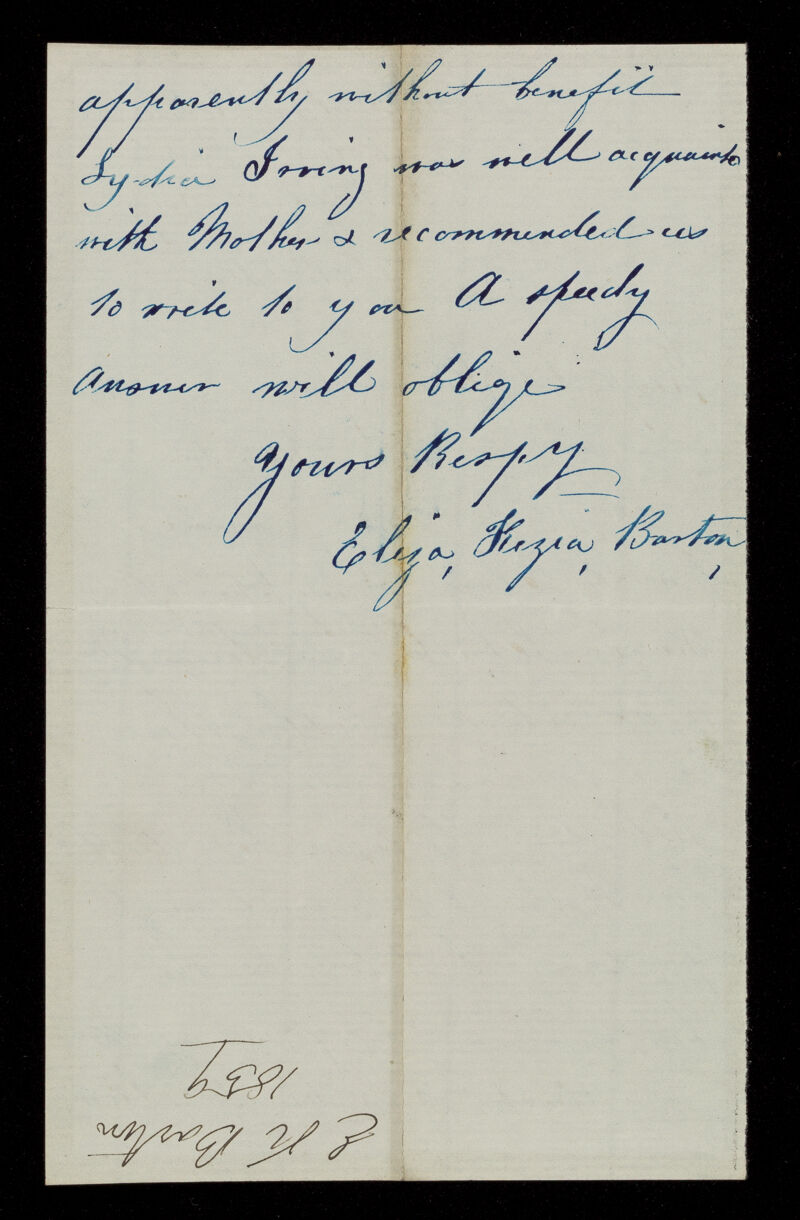 apparently without benefit
Lydia Irving was well acquainted
with Mother & recommended us
to write to you A speedy
answer will oblige
Yours Respy
Eliza, Kezia, Barton,
E K Barton
1859